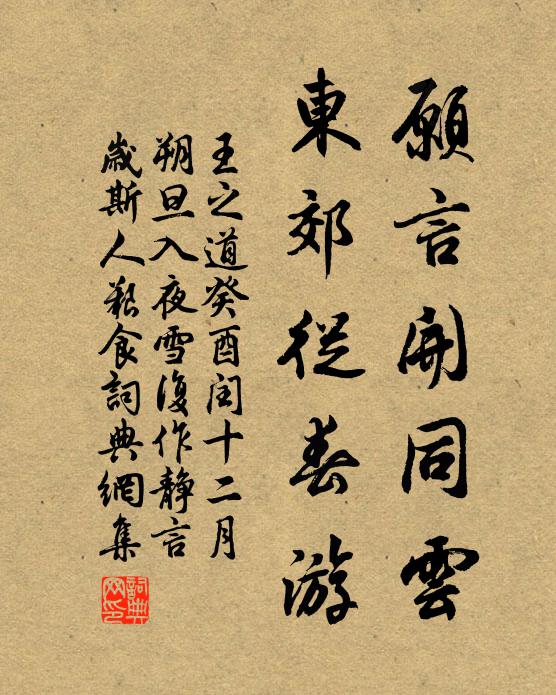 願言開同雲
東郊從春游
王之道癸酉閏十二月
朔旦入夜雪復作靜言
歲斯人艱食詞典網集
詞典
网印